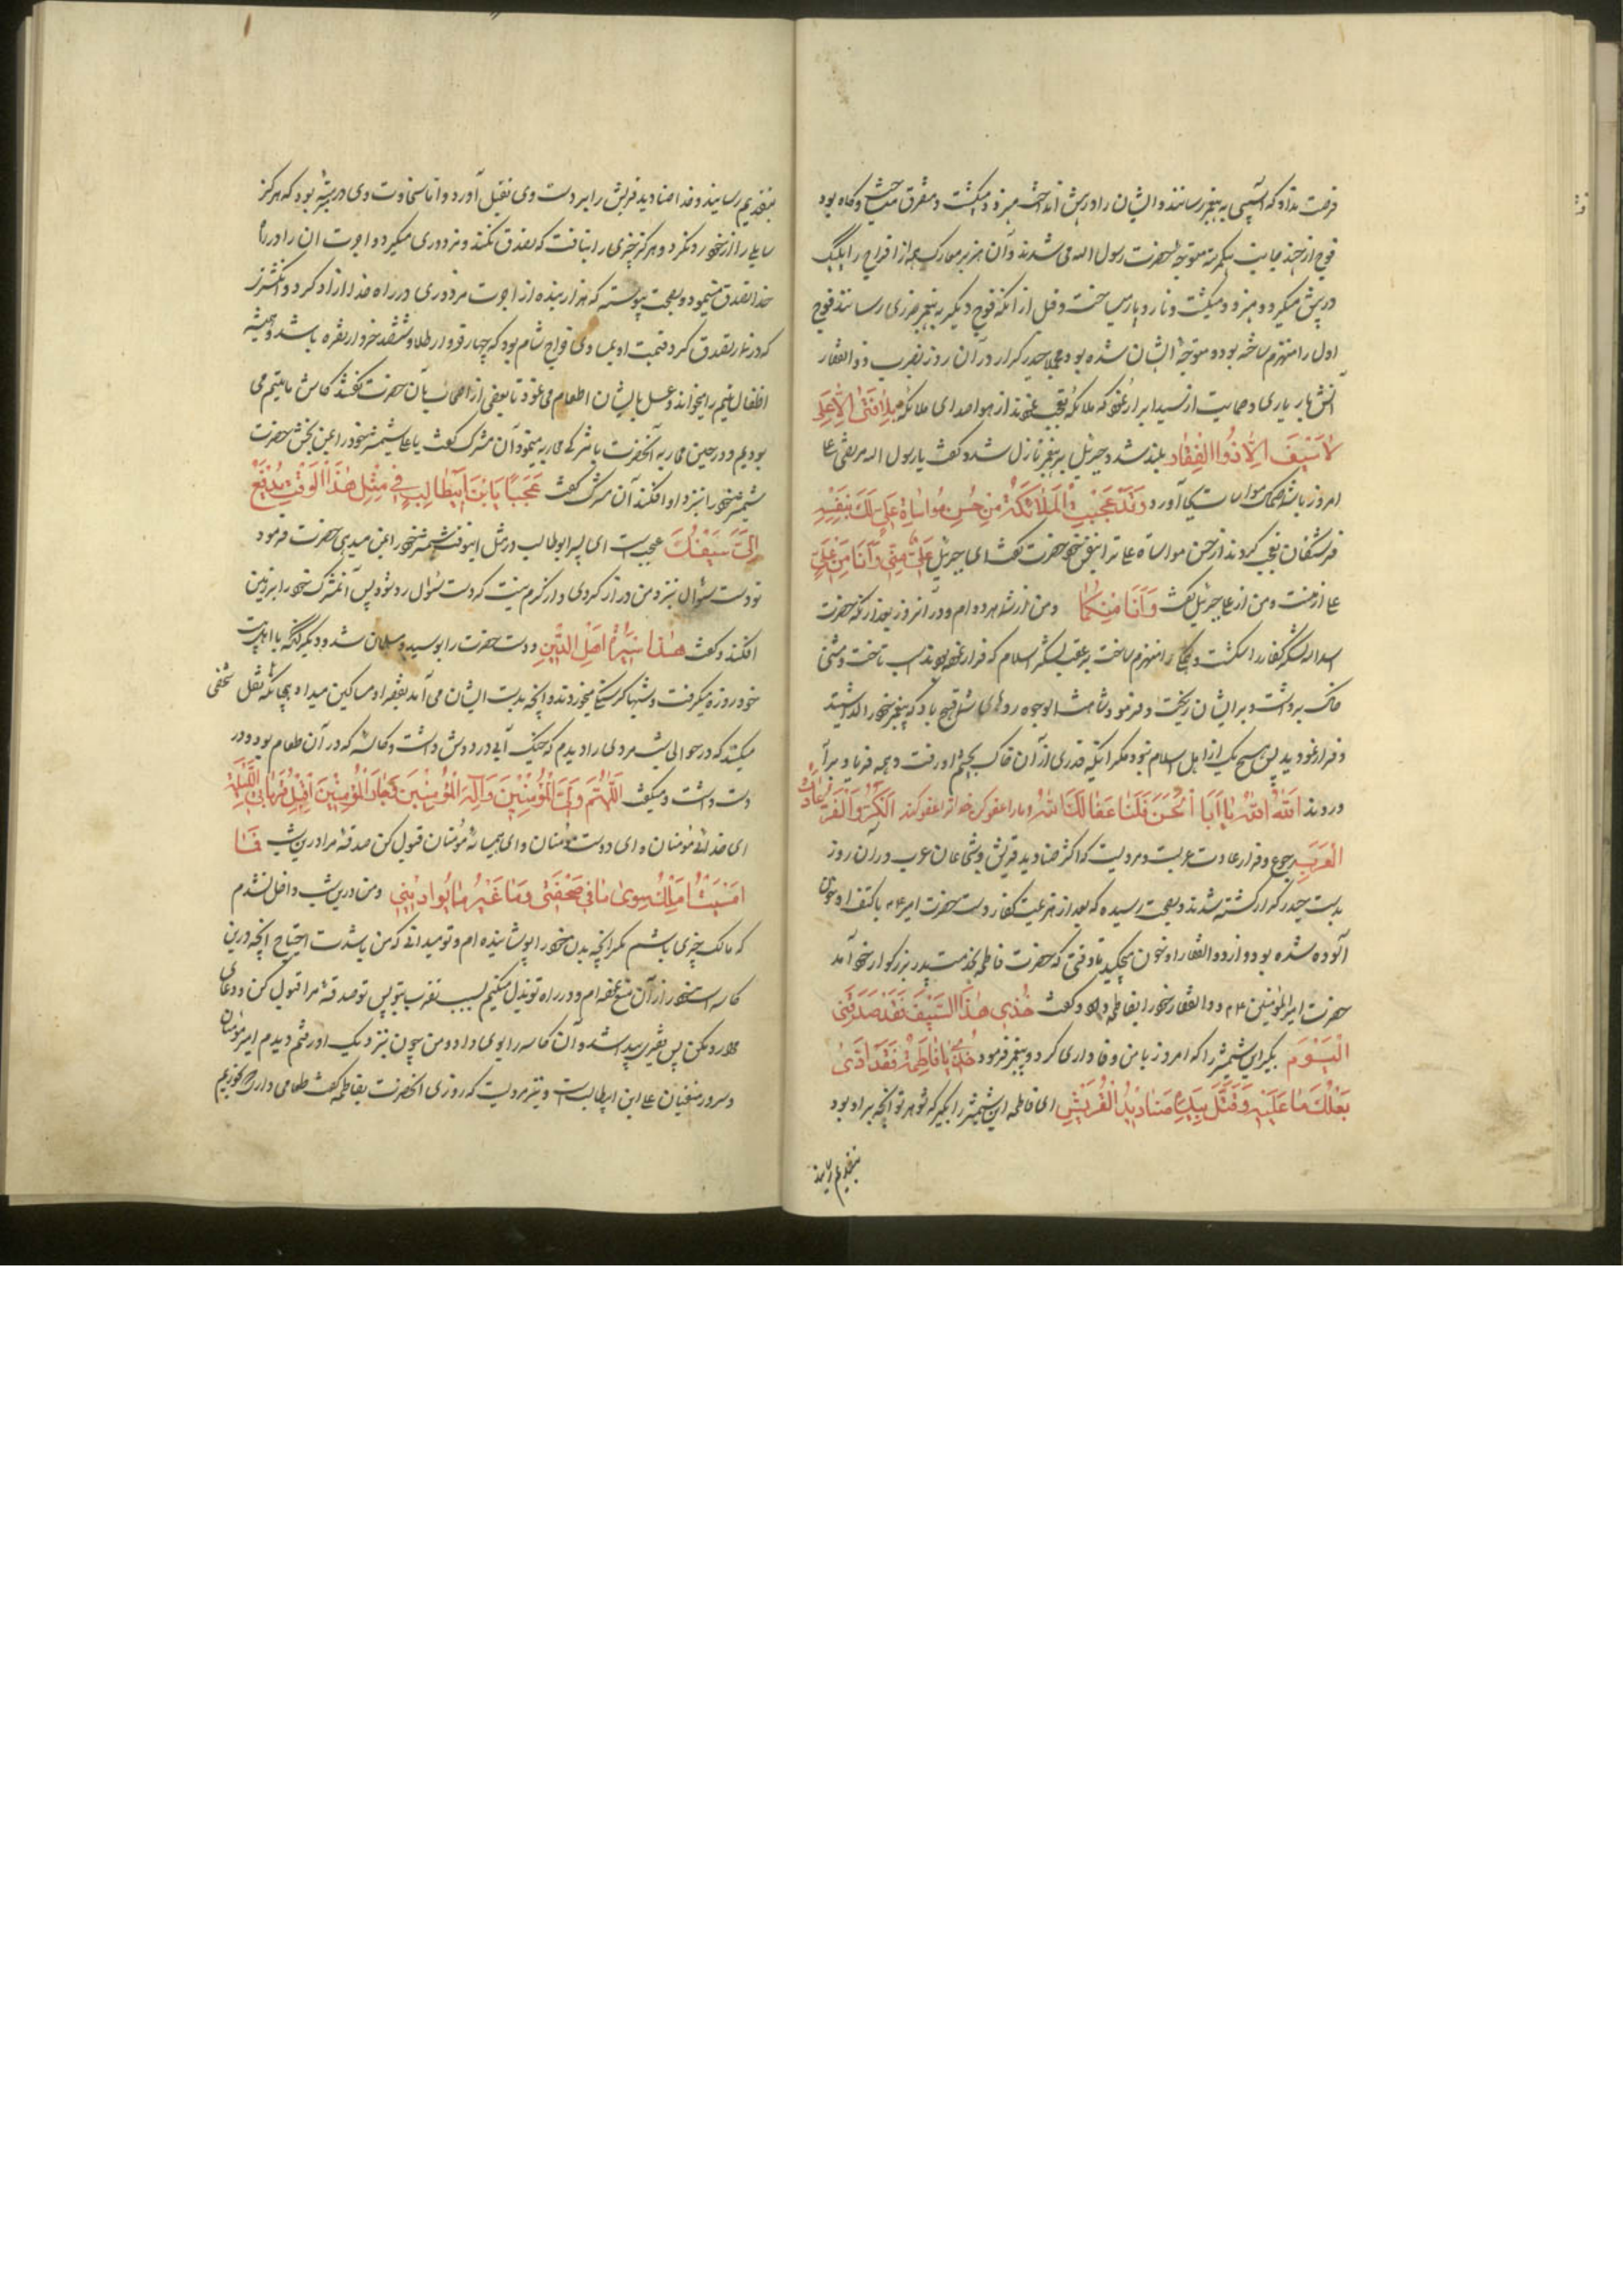 فرصت نداد که آسیبی به پیغمبر رسانند و ایشان را در پیش انداخت میزد و میکشت و متفرق میساخت و گاه بود
فوج از چند جانب یکمرتبه متوجه حضرت رسول الله می شدند و آن هزبر معارک هر یک از افواج را یک یک
در پیش میکرد و میزد و میکشت و تار و مار میساخت و قبل از آنکه فوج دیگر به پیغمبر ضرری رسانند فوج
اول را منهزم ساخته بود و متوجه ایشان شده بود و حیدر کرار در آن روز بضرب ذوالفقار
آتش بار یاری و حمایت از سید ابرار نمود که ملائکه تعجب نمودند از هوا صدای ملائکه به لا فَتٰی اِلّا عَلِی
لا سَیْفَ اِلّا ذُوالفِقار بلند شد و جبرئیل بر پیغمبر نازل شد و گفت یا رسول الله مرتضی علی
امروز با شما مواسات بجا آورد وَ قَدْ عَجِبَتِ الْمَلائِکَةُ مِنْ حُسْنِ مُواساةِ عَلِیٍّ لَکَ بِنَفْسِهِ
فرشتگان تعجب کردند از حسن مواساة علی ترا بنفس خود حضرت گفت ای جبرئیل عَلِیٌّ مِنّی وَ اَنَا مِنْ عَلِیٍّ
علی از منست و من از علی جبرئیل گفت وَ اَنَا مِنْکُما و من از شما هر دو ام و در آنروز بعد از آنکه حضرت
اسد الله لشکر کفار را شکست و را منهزم ساخت به عقب لشکر اسلام که فرار نموده بودند اسب تاخت و مشتی
خاک برداشت و بر ایشان ریخت و فرمود شاهت الوجوه روهای شما قبیح باد که پیغمبر خود را گذاشتید
و فرار نمودید پس هیچ یک از اهل اسلام نبود مگر آنکه قدری از آن خاک بچشم او رفت و همه فریاد بر آ
وردند اَللّٰهَ اَللّٰهَ یا اَبَا الْحَسَنِ عَفَا اللّٰهُ و ما را عفو کن خدا ترا عفو کند اَلْکَرُّ وَ الْفَرُّ عادَتُ
الْعَرَبِ رجوع و فرار عادت عربست و مرویست که اکثر صنادید قریش و شجاعان عرب در آن روز
بدست حیدر کرار کشته شدند و بصحت رسیده که بعد از هزیمت کفار دست حضرت امیر ع م با کتف او بخون
آلوده شده بود و از ذوالفقار او خون میچکید تا وقتی که حضرت فاطمه بخدمت پدر بزرگوار خود آمد
حضرت امیرالمؤمنین ع م ذوالفقار خود را بفاطمه داد و گفت خُذِی هٰذَا السَّیْفَ فَقَدْ صَدَقَنی
الْیَوْمَ بگیر این شمشیر را که امروز با من وفاداری کرد و پیغمبر فرمود خُذیهِ یا فاطِمَةُ فَقَدْ اَدّیٰ
بَعْلُکِ ما عَلَیْهِ وَ قَتَلَ بِیَدِهِ صَنادیدَ الْقُرَیْشِ ای فاطمه این شمشیر را بگیر که شوهر تو آنچه بر او بود
بتقدیم رسانید
بتقدیم رسانید و خدا صنادید قریش را بر دست وی بقتل آورد و اما سخاوت وی در مرتبه بود که هرگز
سایلی را از نزد خود رد نکرد و هرگز چیزی را نیافت که تصدق نکند و مزدوری میکرد و اجرت آن را در راه
خدا تصدق مینمود و بصحت پیوسته که هزار بنده از اجرت مزدوری در راه خدا آزاد کرد و انگشتری
که در نماز تصدق کرد قیمت او خراج شام بود که چهار خروار طلا و ششصد خروار نقره باشد و همیشه
اطفال یتیم را میخواند و عسل بایشان اطعام می نمود تا بعضی از اصحاب بآن حضرت گفتند کاش ما یتیم می
بودیم و در حین محاربه آنحضرت با مشرکی محاربه مینمود آن مشرک گفت یا علی شمشیر خود را بمن بخش حضرت
شمشیر خود را نزد او افکند آن مشرک گفت عَجَباً یَا ابْنَ اَبیطالِبٍ فی مِثْلِ هٰذَا الْوَقْتِ تَدْفَعُ
اِلَیَّ سَیْفَکَ عجب است ای پسر ابوطالب در مثل اینوقت شمشیر خود را بمن میدهی حضرت فرمود
تو دست سؤال نزد من دراز کردی و از کرم نیست که دست سؤال رد شود پس آن مشرک خود را بر زمین
افکند و گفت هٰذا سیرَةُ اَهْلِ الدّینِ و دست حضرت را بوسید و مسلمان شد و دیگر آنکه با اهل بیت
خود روزه میگرفت و شبها گرسنه میخوردند و آنچه بدست ایشان می آمد بفقراء و مساکین میداد چنانکه نقل شخصی
میکند که در حوالی شب مردی را دیدم که خیک آبی در دوش داشت و کاسه که در آن طعام بود در
دست داشت و میگفت اَللّٰهُمَّ وَلِیَّ الْمُؤْمِنینَ وَ اِلٰهَ الْمُؤْمِنینَ وَ جارَ الْمُؤْمِنینَ اِقْبَلْ قُرْبانِی اللَّیْلَةَ
ای خدای مؤمنان و ای دوست مؤمنان و ای همسایه مؤمنان قبول کن صدقه مرا در این شب فَما
اَمْسَیْتُ اَمْلِکُ سِوٰی ما فی صَحْفَتی وَ ما غَیْرُ ما یُوارینی و من درین شب داخل نشدم
که مالک چیزی باشم مگر آنچه بدن خود را پوشانیده ام و تو میدانی که من با شدت احتیاج آنچه درین
کاسه است خود را از آن منع نموده ام و در راه تو بذل میکنم بسبب تقرب بتو پس تو صدقه مرا قبول کن و دعای
مرا رد مکن پس بفقیری رسید و آن کاسه را بوی داد و من چون نزدیک او رفتم دیدم امیر مؤمنان
و سرور متقیان علی ابن ابیطالب است و نیز مرویست که روزی آنحضرت بفاطمه گفت طعامی داری که بخوریم